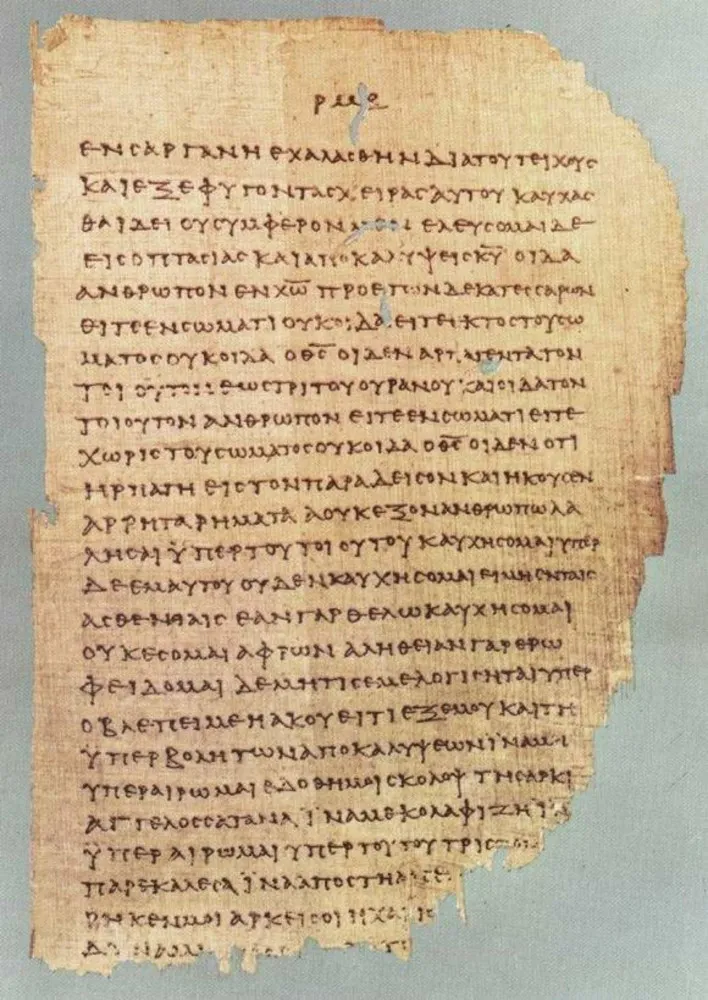 ρμε
ΕΝϹΑΡΓΑΝΗΕΧΑΛΑϹΘΗΝΔΙΑΤΟΥΤΕΙΧΟΥϹ
ΚΑΙΕΞΕΦΥΓΟΝΤΑϹΧΕΙΡΑϹΑΥΤΟΥΚΑΥΧΑϹ
ΘΑΙΔΕΙΟΥϹΥΜΦΕΡΟΝΜΕΝΕΛΕΥϹΟΜΑΙΔΕ
ΕΙϹΟΠΤΑϹΙΑϹΚΑΙΑΠΟΚΑΛΥΨΕΙϹΚ̅Υ̅ΟΙΔΑ
ΑΝΘΡΩΠΟΝΕΝΧ̅Ω̅ΠΡΟΕΤΩΝΔΕΚΑΤΕϹϹΑΡΩΝ
ΕΙΤΕΕΝϹΩΜΑΤΙΟΥΚΟΙΔΑΕΙΤΕΕΚΤΟϹΤΟΥϹΩ
ΜΑΤΟϹΟΥΚΟΙΔΑΟΘ̅Ϲ̅ΟΙΔΕΝΑΡΠΑΓΕΝΤΑΤΟΝ
ΤΟΙΟΥΤΟΝΕΩϹΤΡΙΤΟΥΟΥΡΑΝΟΥΚΑΙΟΙΔΑΤΟΝ
ΤΟΙΟΥΤΟΝΑΝΘΡΩΠΟΝΕΙΤΕΕΝϹΩΜΑΤΙΕΙΤΕ
ΧΩΡΙϹΤΟΥϹΩΜΑΤΟϹΟΥΚΟΙΔΑΟΘ̅Ϲ̅ΟΙΔΕΝΟΤΙ
ΗΡΠΑΓΗΕΙϹΤΟΝΠΑΡΑΔΕΙϹΟΝΚΑΙΗΚΟΥϹΕΝ
ΑΡΡΗΤΑΡΗΜΑΤΑΑΟΥΚΕΞΟΝΑΝΘΡΩΠΩΛΑ
ΛΗϹΑΙΫΠΕΡΤΟΥΤΟΙΟΥΤΟΥΚΑΥΧΗϹΟΜΑΙΥΠΕΡ
ΔΕΕΜΑΥΤΟΥΟΥΔΕΝΚΑΥΧΗϹΟΜΑΙΕΙΜΗΕΝΤΑΙϹ
ΑϹΘΕΝΕΙΑΙϹΕΑΝΓΑΡΘΕΛΩΚΑΥΧΗϹΟΜΑΙ
ΟΥΚΕϹΟΜΑΙΑΦΡΩΝΑΛΗΘΕΙΑΝΓΑΡΕΡΩ
ΦΕΙΔΟΜΑΙΔΕΜΗΤΙϹΕΜΕΛΟΓΙϹΗΤΑΙΥΠΕΡ
ΟΒΛΕΠΕΙΜΕΗΑΚΟΥΕΙΤΙΕΞΕΜΟΥΚΑΙΤΗ
ΫΠΕΡΒΟΛΗΤΩΝΑΠΟΚΑΛΥΨΕΩΝΪΝΑΜΗ
ΥΠΕΡΑΙΡΩΜΑΙΕΔΟΘΗΜΟΙϹΚΟΛΟΨΤΗϹΑΡΚΙ
ΑΓΓΕΛΟϹϹΑΤΑΝΑΪΝΑΜΕΚΟΛΑΦΙΖΗΪ
ΫΠΕΡΑΙΡΩΜΑΙΥΠΕΡΤΟΥΤΟΥΤΡΙϹ
ΠΑΡΕΚΑΛΕϹΑΪΝΑΑΠΟϹΤΗ
ΡΗΚΕΝΜΟΙΑΡΚΕΙϹΟΙΗΧΑΡΙϹ
ΔΥΝΑΜΙϹ